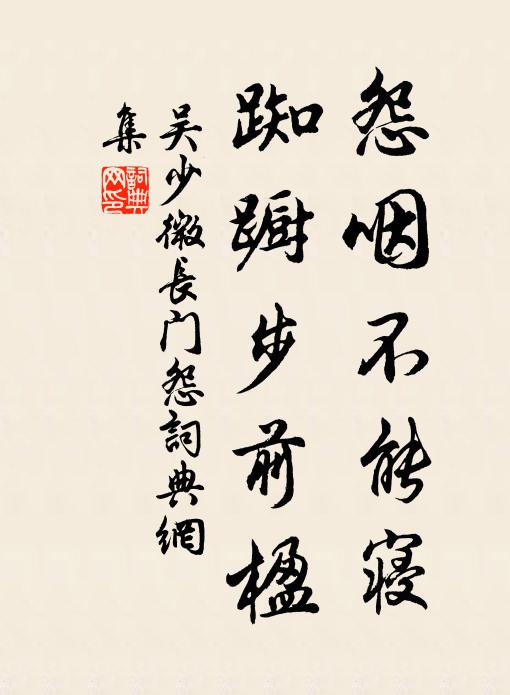 怨咽不能寝
踟蹰步前楹
吴少微长门怨詞典網
集
詞典
网印